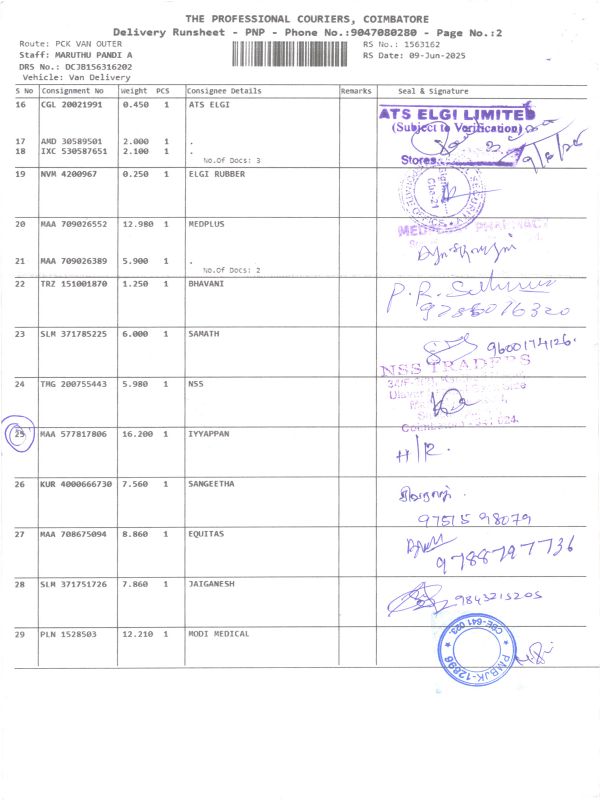 THE PROFESSIONAL COURIERS, COIMBATORE
Delivery Runsheet - PNP - Phone No.:9047080280 - Page No.:2
Route: PCK VAN OUTER
RS No.: 1563162
Staff: MARUTHU PANDI A
RS Date: 09-Jun-2025
DRS No.: DCJB156316202
Vehicle: Van Delivery
S No Consignment No Weight PCS Consignee Details Remarks Seal & Signature
16 CGL 20021991 0.450 1 ATS ELGI
ATS ELGI LIMITED
(Subject to Verification)
17 AMD 30589501 2.000 1 .
18 IXC 530587651 2.100 1 .
No.Of Docs: 3
Stores
9/6/25
19 NVM 4200967 0.250 1 ELGI RUBBER
20 MAA 709026552 12.980 1 MEDPLUS
21 MAA 709026389 5.900 1 .
No.Of Docs: 2
22 TRZ 151001870 1.250 1 BHAVANI
P.R.
23 SLM 371785225 6.000 1 SAMATH
9600174126.
NSS TRADERS
24 TMG 200755443 5.980 1 NSS
25 MAA 577817806 16.200 1 IYYAPPAN
H/R.
26 KUR 4000666730 7.560 1 SANGEETHA
97515 98079
27 MAA 708675094 8.860 1 EQUITAS
9788797736
28 SLM 371751726 7.860 1 JAIGANESH
9843215205
29 PLN 1528503 12.210 1 MODI MEDICAL
CBE-641 023.
PMBJK-12896